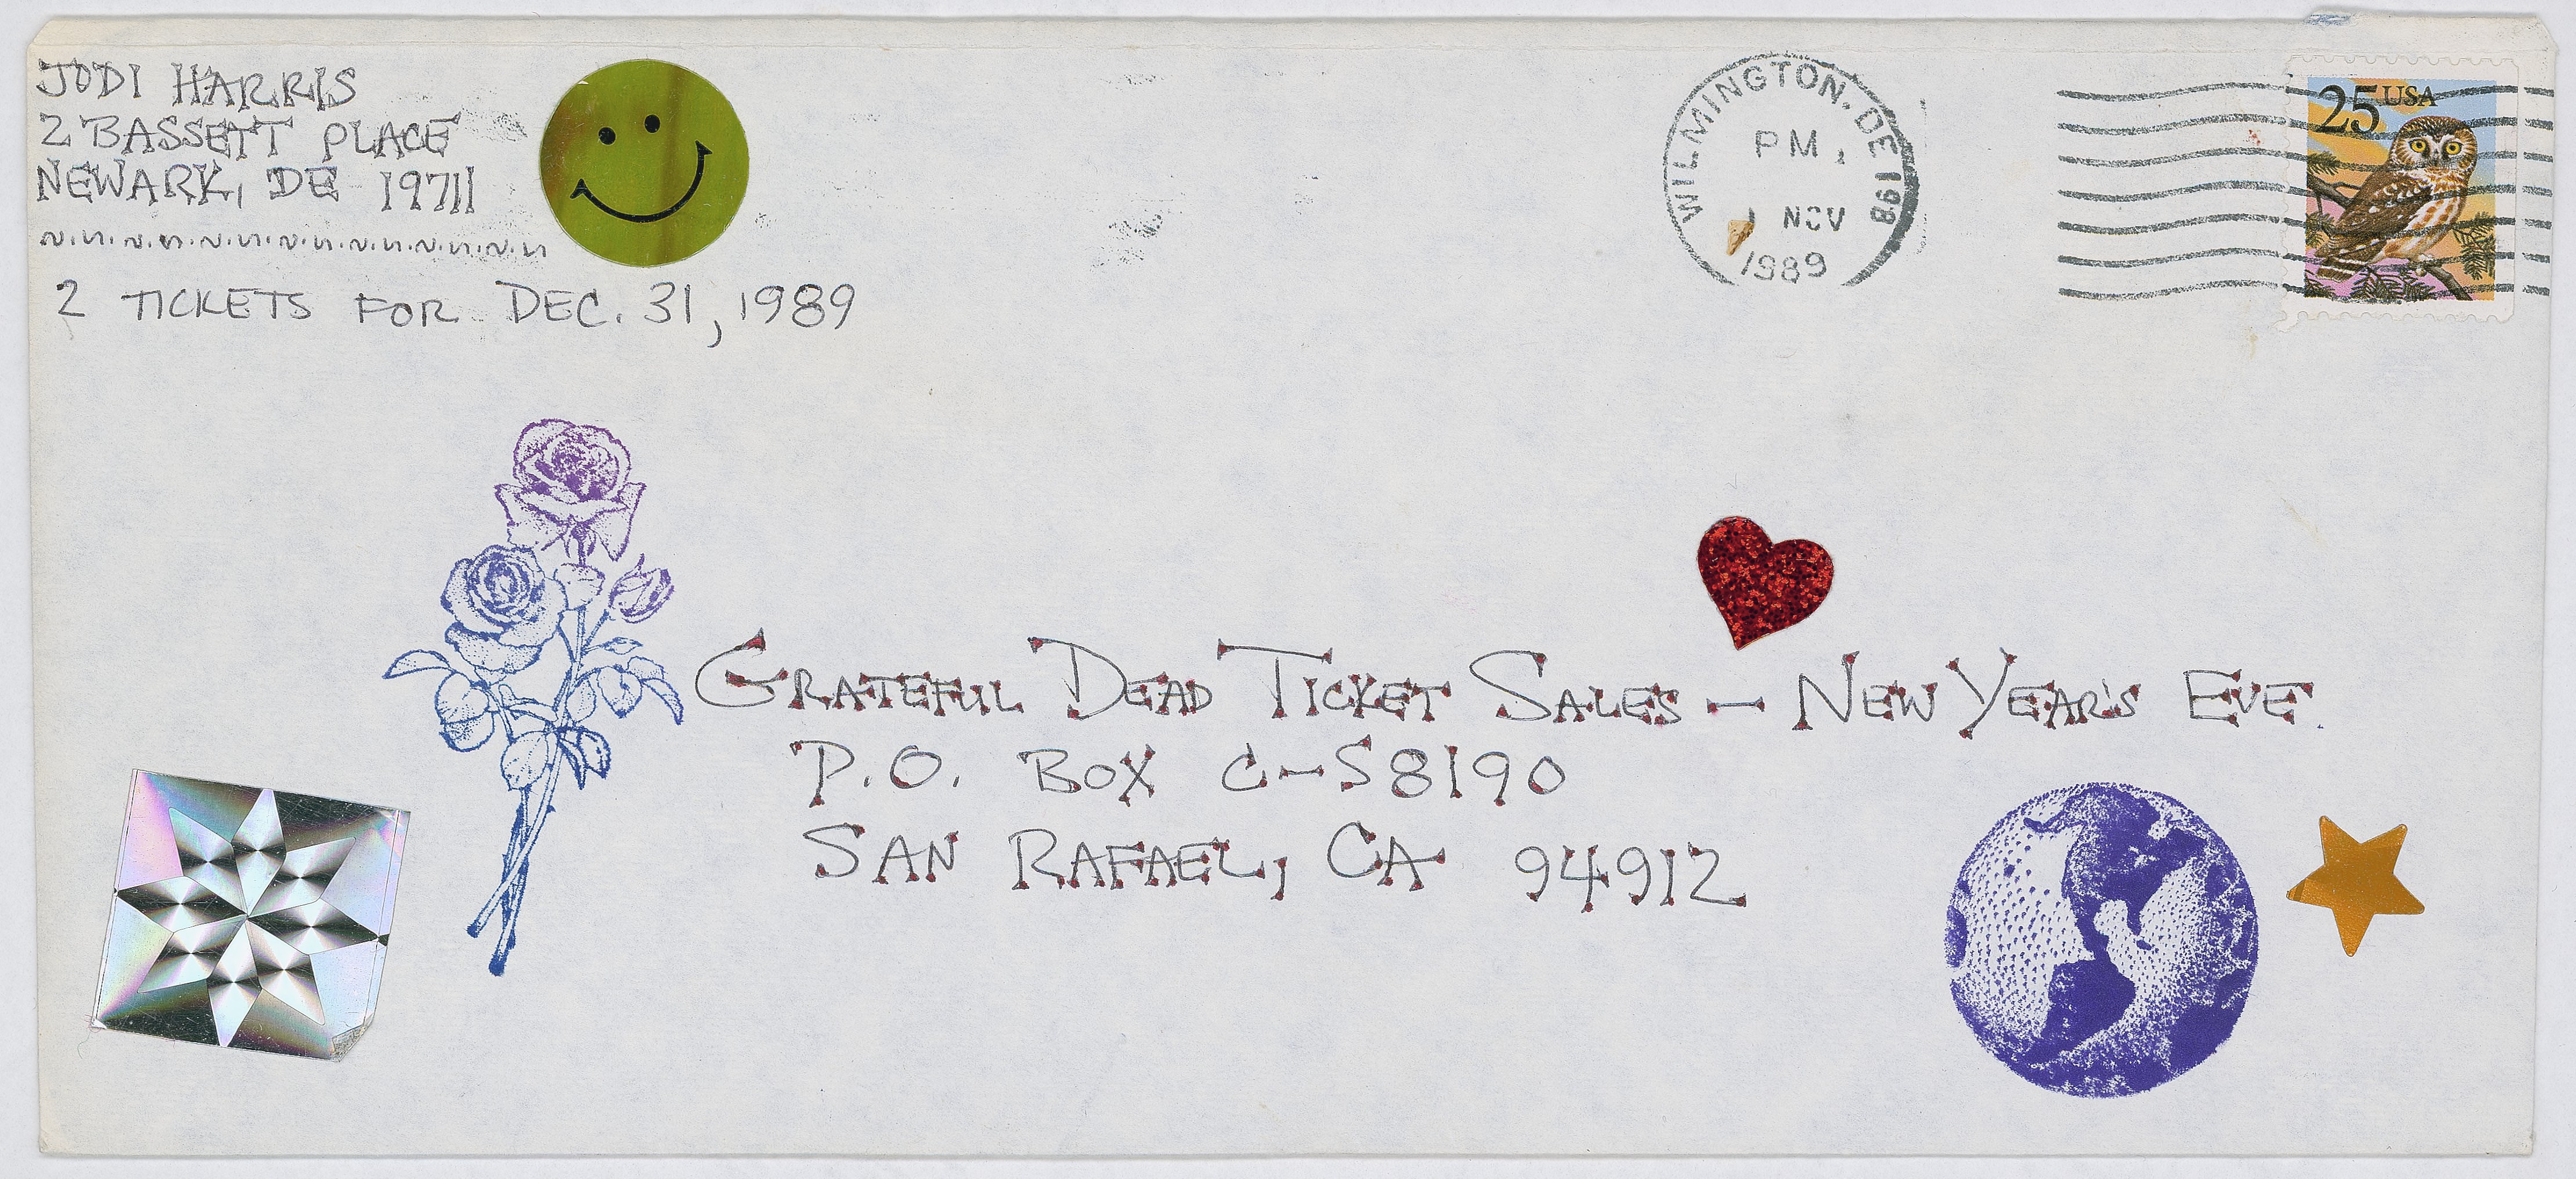 JODI HARRIS
2 BASSETT PLACE
NEWARK, DE 19711
2 TICKETS FOR DEC. 31, 1989
WILMINGTON, DE 198
PM
1 NOV
1989
25 USA
GRATEFUL DEAD TICKET SALES — NEW YEAR'S EVE.
P.O. BOX C-S8190
SAN RAFAEL, CA 94912